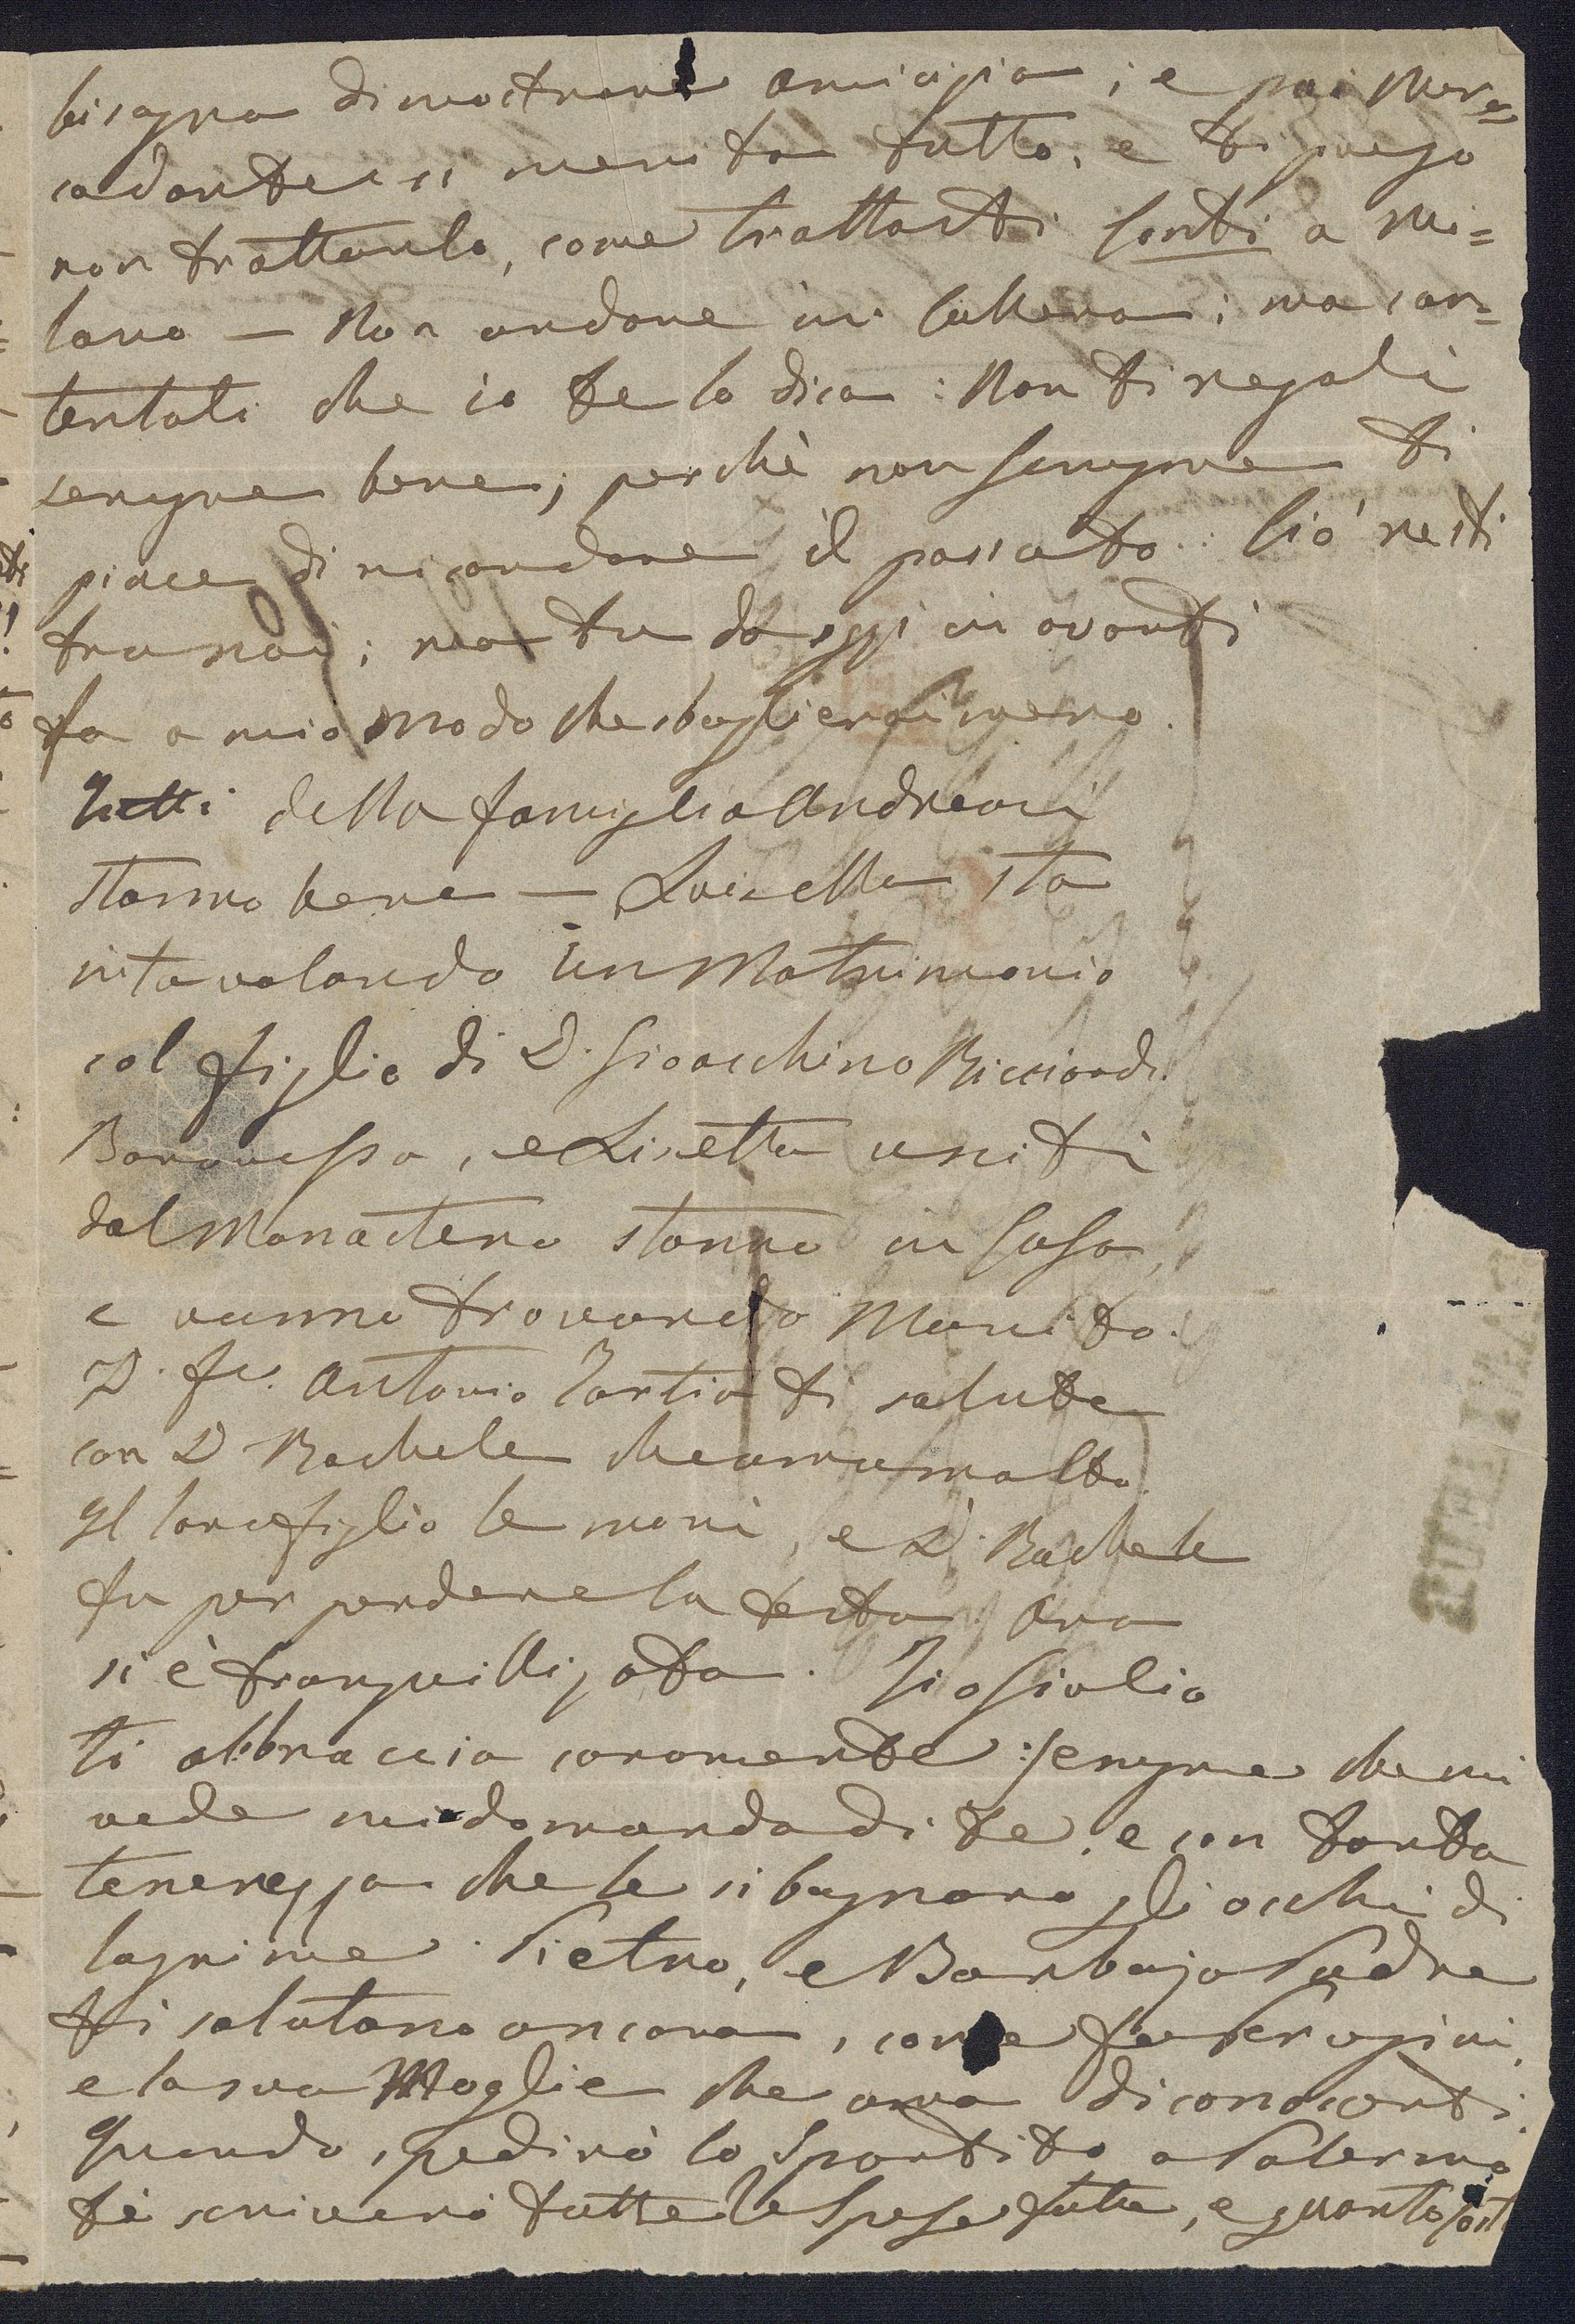 bisogna dimostrare amicizia; e poi Mer=
cadante si merita tutto, e ti prego
non trattarlo, come trattasti Conti a Mi=
lano — Non andare in collera; ma con=
tentati che io te lo dica: Non ti regoli
sempre bene; perchè non sempre ti
piace di ricordare il passato. Ciò resti
tra noi; ma tu da oggi in avanti
fa a mio modo che sbaglierai meno.
Tutti della famiglia Andreani
stanno bene — Luisella sta
intavolando un Matrimonio
col figlio di D. Gioacchino Ricciardi
e Lisetta usciti
dal Monastero stanno in Casa,
e vanno trovando Marito.
D. Antonio ti saluta
con D. Rachele che ama molto.
Il le mani, e D. Rachele
fu per perdere la testa. Ora
si è tranquillizzata. Zio Giulio
ti abbraccia caramente: sempre che mi
vede mi domanda di te, e con tanta
tenerezza che le si bagnano gli occhi di
lagrime. Pietro, e Barbaja Padre
ti salutano ancora, come fa
e la sua Moglie che ama di conoscerti.
Quando spedirò lo Spartito a Palermo
ti scriverò tutte le Spese fatte, e quanto